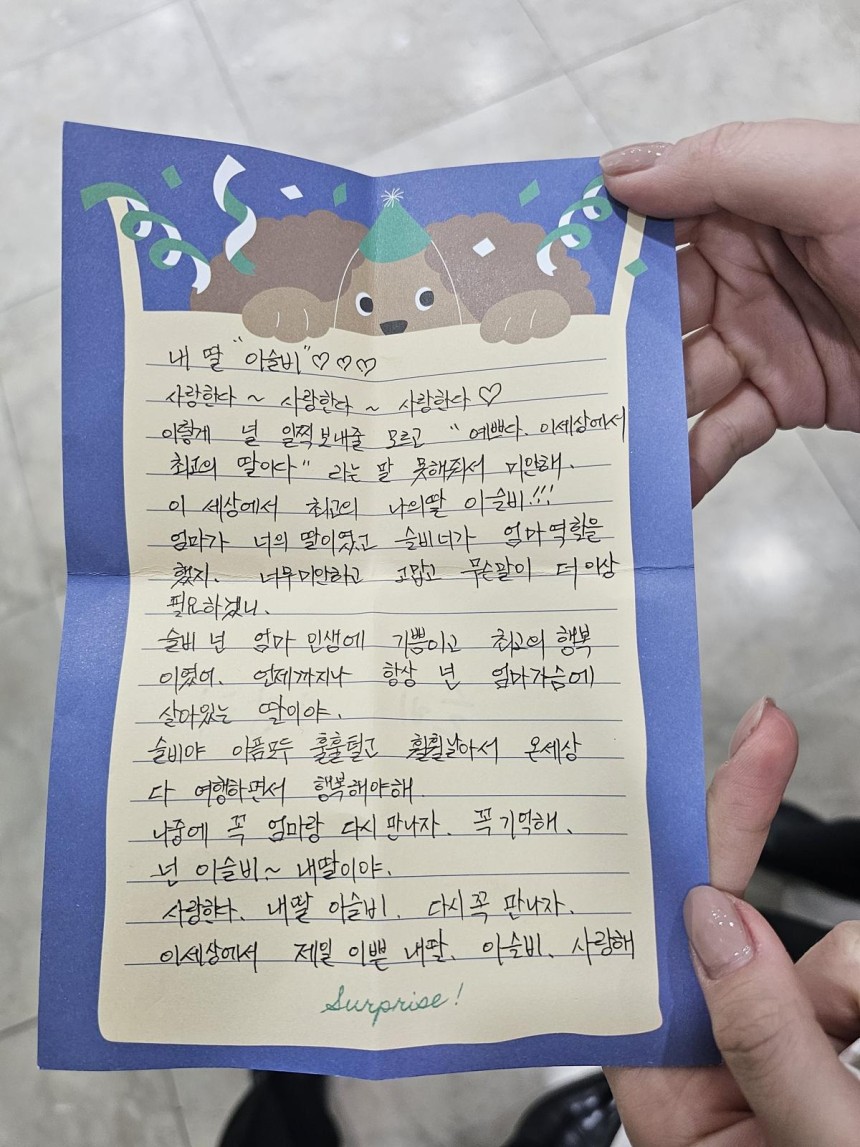 내 딸 "이슬비" ♡♡♡
사랑한다 ~ 사랑한다 ~ 사랑한다 ♡
이렇게 널 일찍 보내줄 모르고 "예쁘다. 이세상에서
최고의 딸이다" 라는 말 못해줘서 미안해.
이 세상에서 최고의 나의딸 이슬비!!!
엄마가 너의 딸이였고 슬비너가 엄마역활을
했지. 너무미안하고 고맙고 무슨말이 더이상
필요하겠니.
슬비 넌 엄마 인생에 기쁨이고 최고의 행복
이였어. 언제까지나 항상 넌 엄마가슴에
살아있는 딸이야.
슬비야 아픔모두 훌훌털고 훨훨날아서 온세상
다 여행하면서 행복해야해.
나중에 꼭 엄마랑 다시만나자. 꼭기억해.
넌 이슬비~ 내딸이야.
사랑한다. 내딸 이슬비. 다시꼭 만나자.
이세상에서 제일 이쁜 내딸. 이슬비. 사랑해
Surprise!